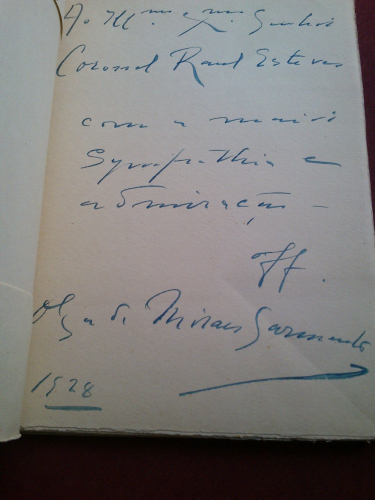 Ao Ill.mo e Ex.mo Senhor
Coronel Raul Esteves
com a maior
Sympathia e
admiração –
Off.
Olga de Moraes Sarmento
1928